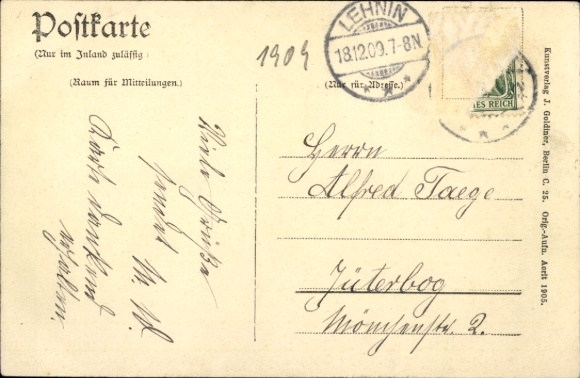 Postkarte
(Nur im Inland zulässig
(Raum für Mitteilungen.)
1909
LEHNIN
18.12.09.7-8N
(Nur für Adresse.)
ES REICH
Viele Grüße
sendet M. W.
Karte dankend
erhalten.
Herrn
Alfred Taege
Jüterbog
Mönchenstr. 2.
Kunstverlag J. Goldiner, Berlin C. 25. Orig.-Aufn. April 1905.